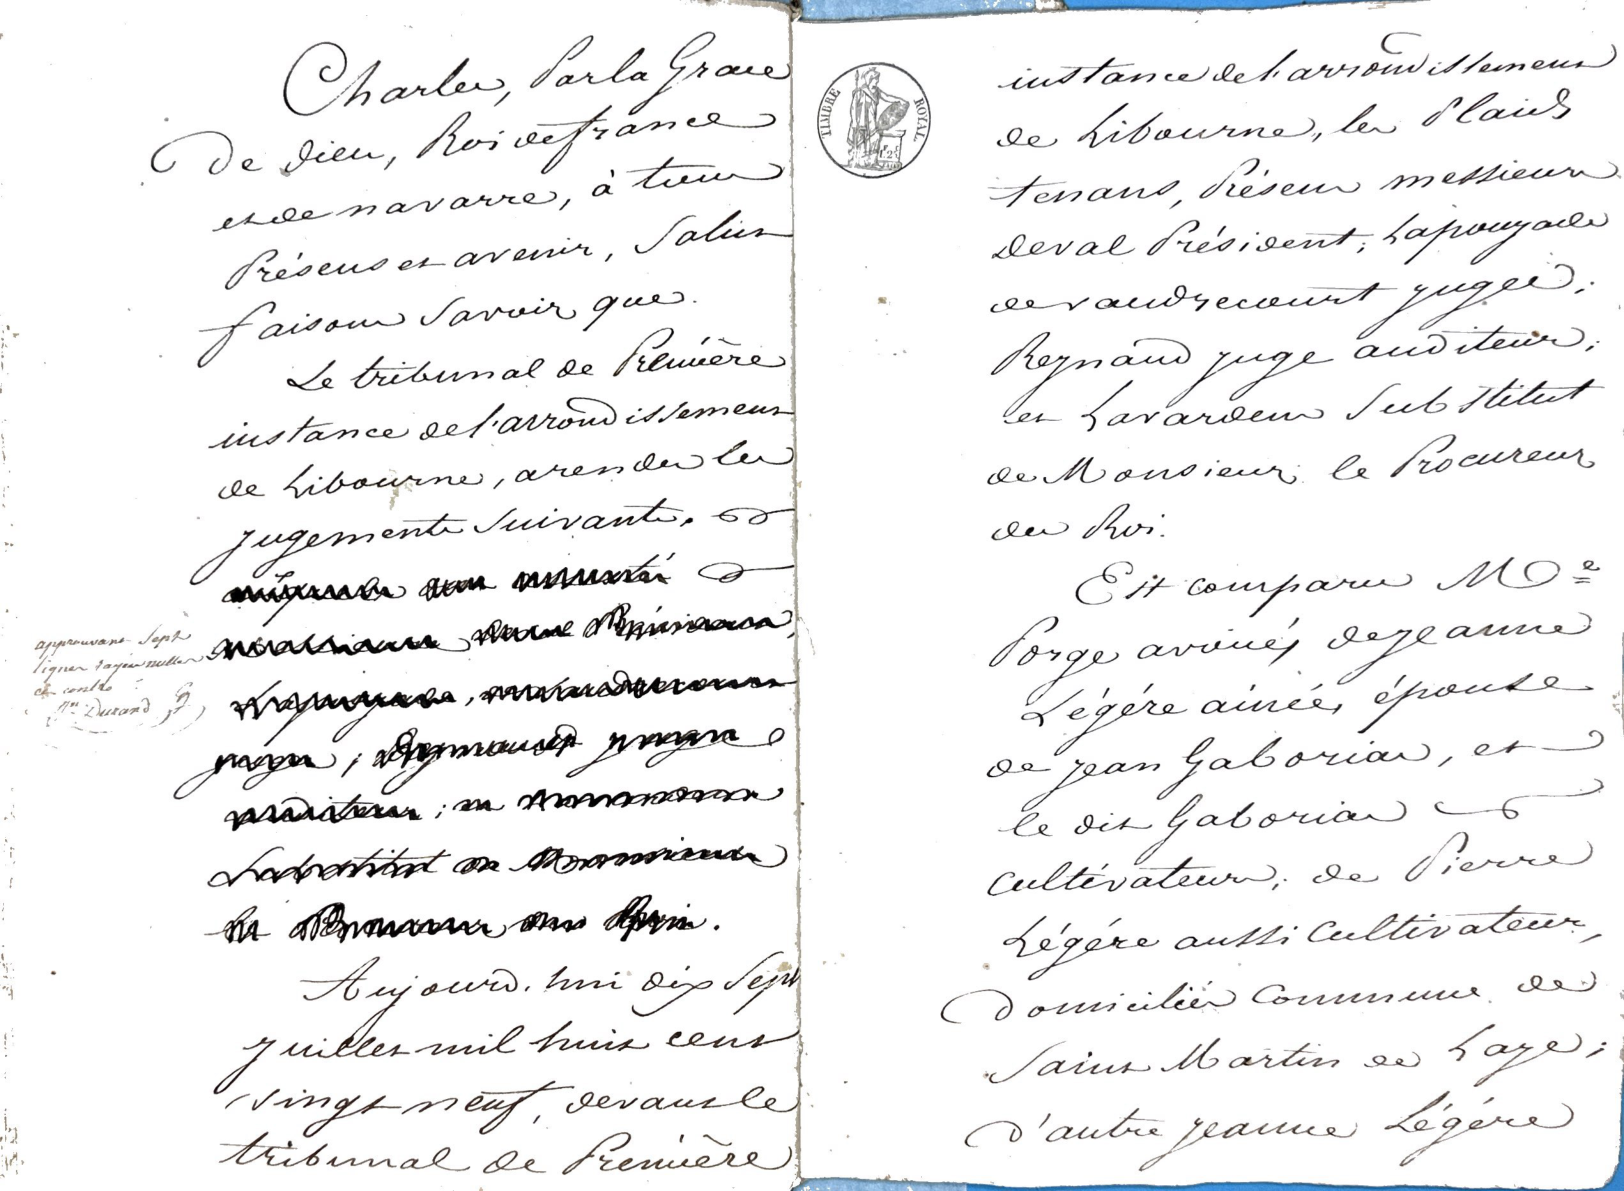 Charles, Par la Grace
De Dieu, Roi de france
et de navarre, à tous
Présens et avenir, Salut
faisons Savoir que
Le tribunal de Première
instance de l'arrondissement
de Libourne, a rendu les
jugements Suivants.
Approuvant Sept
lignes rayées nulles
ci contre
Durand
Aujourd'hui dix Sept
juillet mil huit cent
vingt neuf, devant le
tribunal de Première
TIMBRE ROYAL
instance de l'arrondissement
de Libourne, les Plaids
tenans, Présens messieurs
Deval Président; Lapouyade
de vaudrecourt juges;
Reynaud juge auditeur;
et Lavardens Substitut
de Monsieur le Procureur
du Roi.
Est comparu Me
Porge avoué, de jeanne
Légére ainée, épouse
de jean Gaboriau, et
le dit Gaboriau
cultivateurs; de Pierre
Légére aussi cultivateur,
Domiciliés Commune de
Saint Martin de Laye;
D'autre jeanne Légére